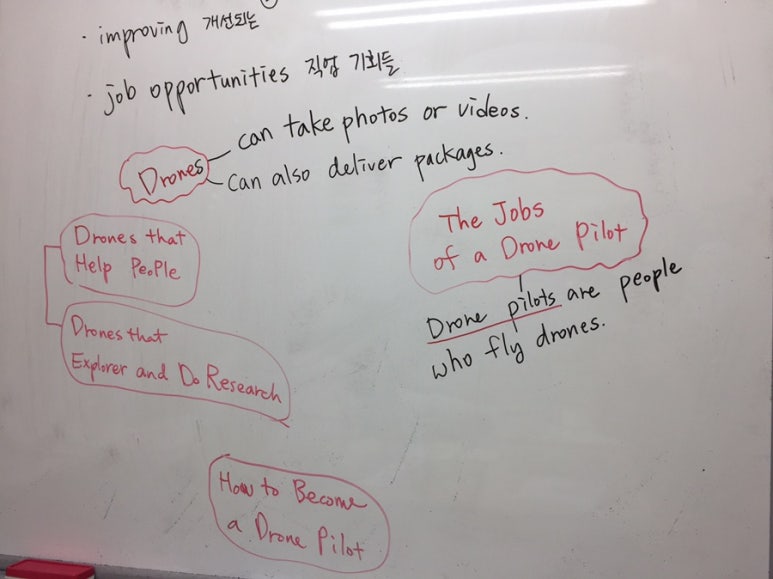 · improving 개선되는
· job opportunities 직업 기회들
Drones
can take photos or videos.
can also deliver packages.
The Jobs
of a Drone Pilot
Drone pilots are people
who fly drones.
Drones that
Help People
Drones that
Explorer and Do Research
How to Become
a Drone Pilot